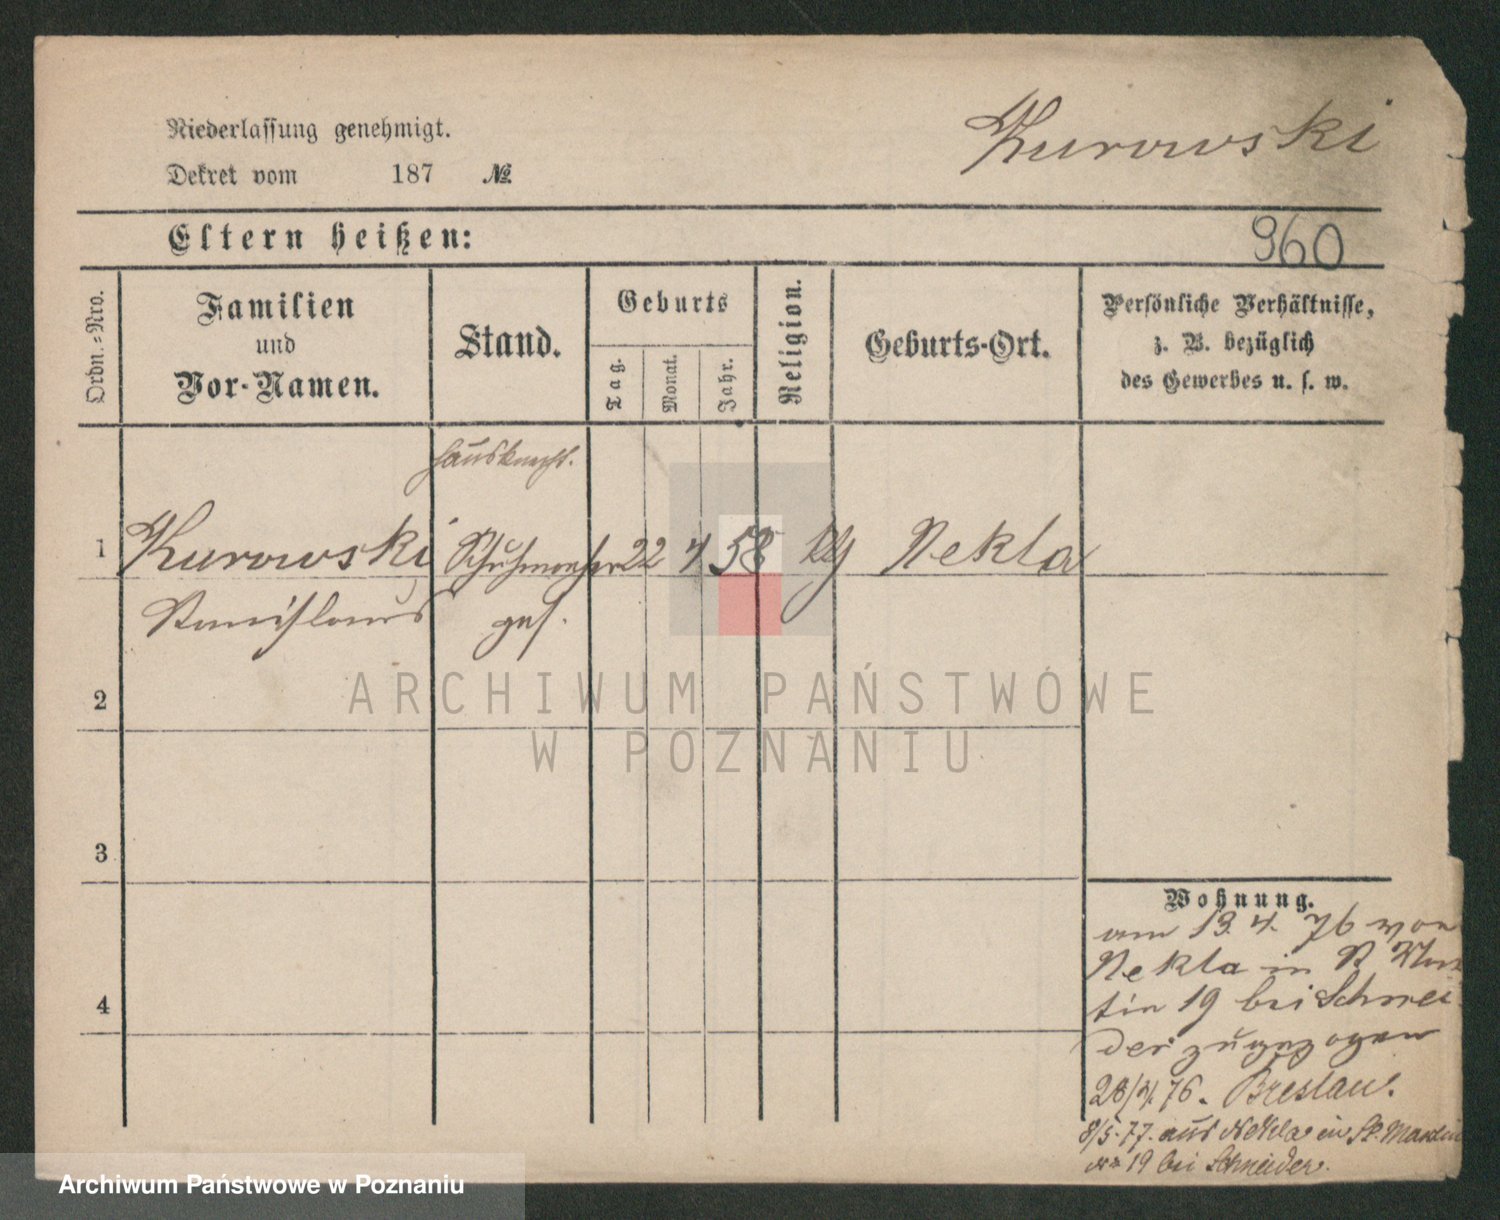 Niederlassung genehmigt.
Kurowski
Dekret vom 187 №
Eltern heißen:
960
Ordn.=Nro.
Familien
und
Vor-Namen.
Stand.
Geburts
Tag.
Monat.
Jahr.
Religion.
Geburts-Ort.
Persönliche Verhältnisse,
z. B. bezüglich
des Gewerbes u. s. w.
Hausknecht.
1 Kurowski Schuhmacher 22 4 58 kg Nekla
Stanislaus ges.
2
3
4
Wohnung.
am 13. 4. 76 von
Nekla in St Mar
tin 19 bei Schnei
der zugezogen
28/4. 76. Breslau.
8/5. 77. aus Nekla in St. Martin
No 19 bei Schneider.
ARCHIWUM PAŃSTWOWE
W POZNANIU
Archiwum Państwowe w Poznaniu